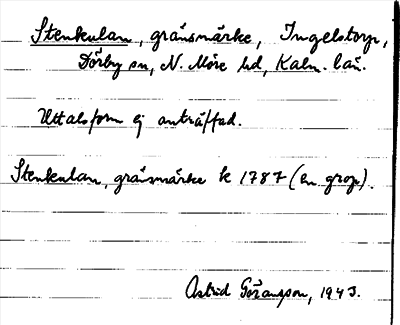 Stenkulan, gränsmärke, Ingelstorp,
Dörby sn, N. Möre hd, Kalm. län.
Uttalsform ej anträffad.
Stenkulan, gränsmärke k 1787 (en grop).
Astrid Göransson, 1943.